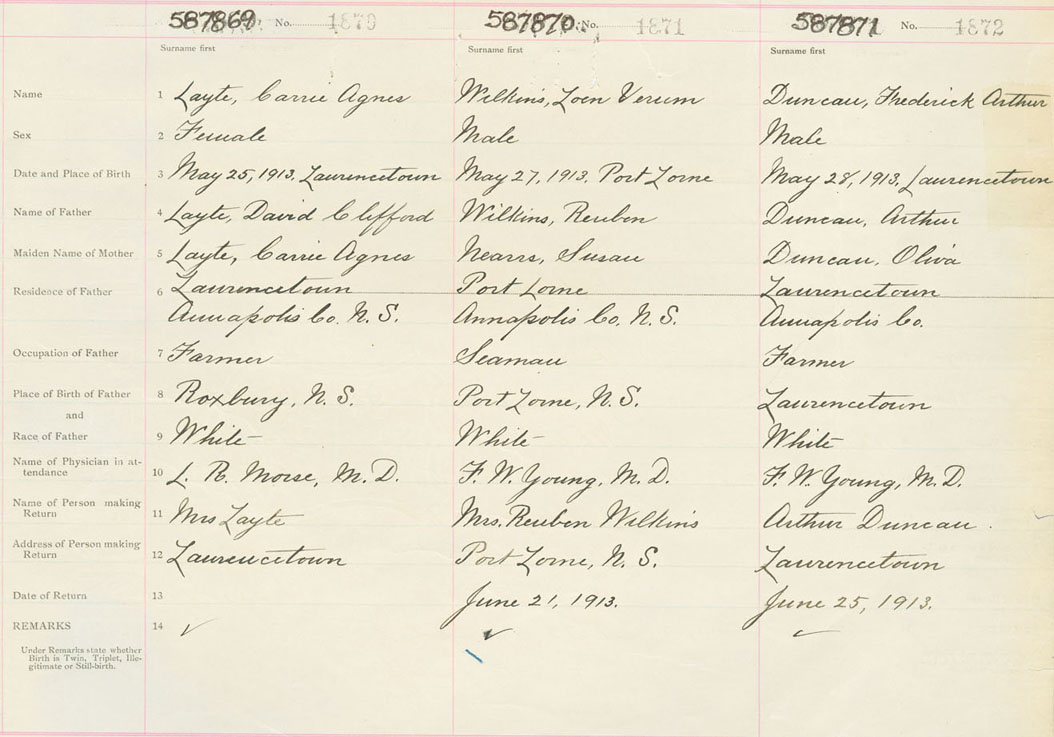 587869 No. 1870 587870 No. 1871 587871 No. 1872
Surname first Surname first Surname first
Name 1 Layte, Carrie Agnes Wilkins, Loen Verum Duncan, Frederick Arthur
Sex 2 Female Male Male
Date and Place of Birth 3 May 25, 1913. Laurencetown May 27, 1913. Port Lorne May 28, 1913, Laurencetown
Name of Father 4 Layte, David Clifford Wilkins, Reuben Duncan, Arthur
Maiden Name of Mother 5 Layte, Carrie Agnes Nearrs, Susan Duncan, Oliva
Residence of Father 6 Laurencetown Port Lorne Laurencetown
Annapolis Co. N. S. Annapolis Co, N. S. Annapolis Co.
Occupation of Father 7 Farmer Seaman Farmer
Place of Birth of Father 8 Roxbury, N. S. Port Lorne, N. S. Laurencetown
and
Race of Father 9 White White White
Name of Physician in at-
tendance 10 L. R. Morse, M. D. F. W. Young, M. D. F. W. Young, M. D.
Name of Person making
Return 11 Mrs Layte Mrs. Reuben Wilkins Arthur Duncan.
Address of Person making
Return 12 Laurencetown Port Lorne, N. S. Laurencetown
Date of Return 13 June 21, 1913. June 25, 1913.
REMARKS 14
Under Remarks state whether
Birth is Twin, Triplet, Ille-
gitimate or Still-birth.